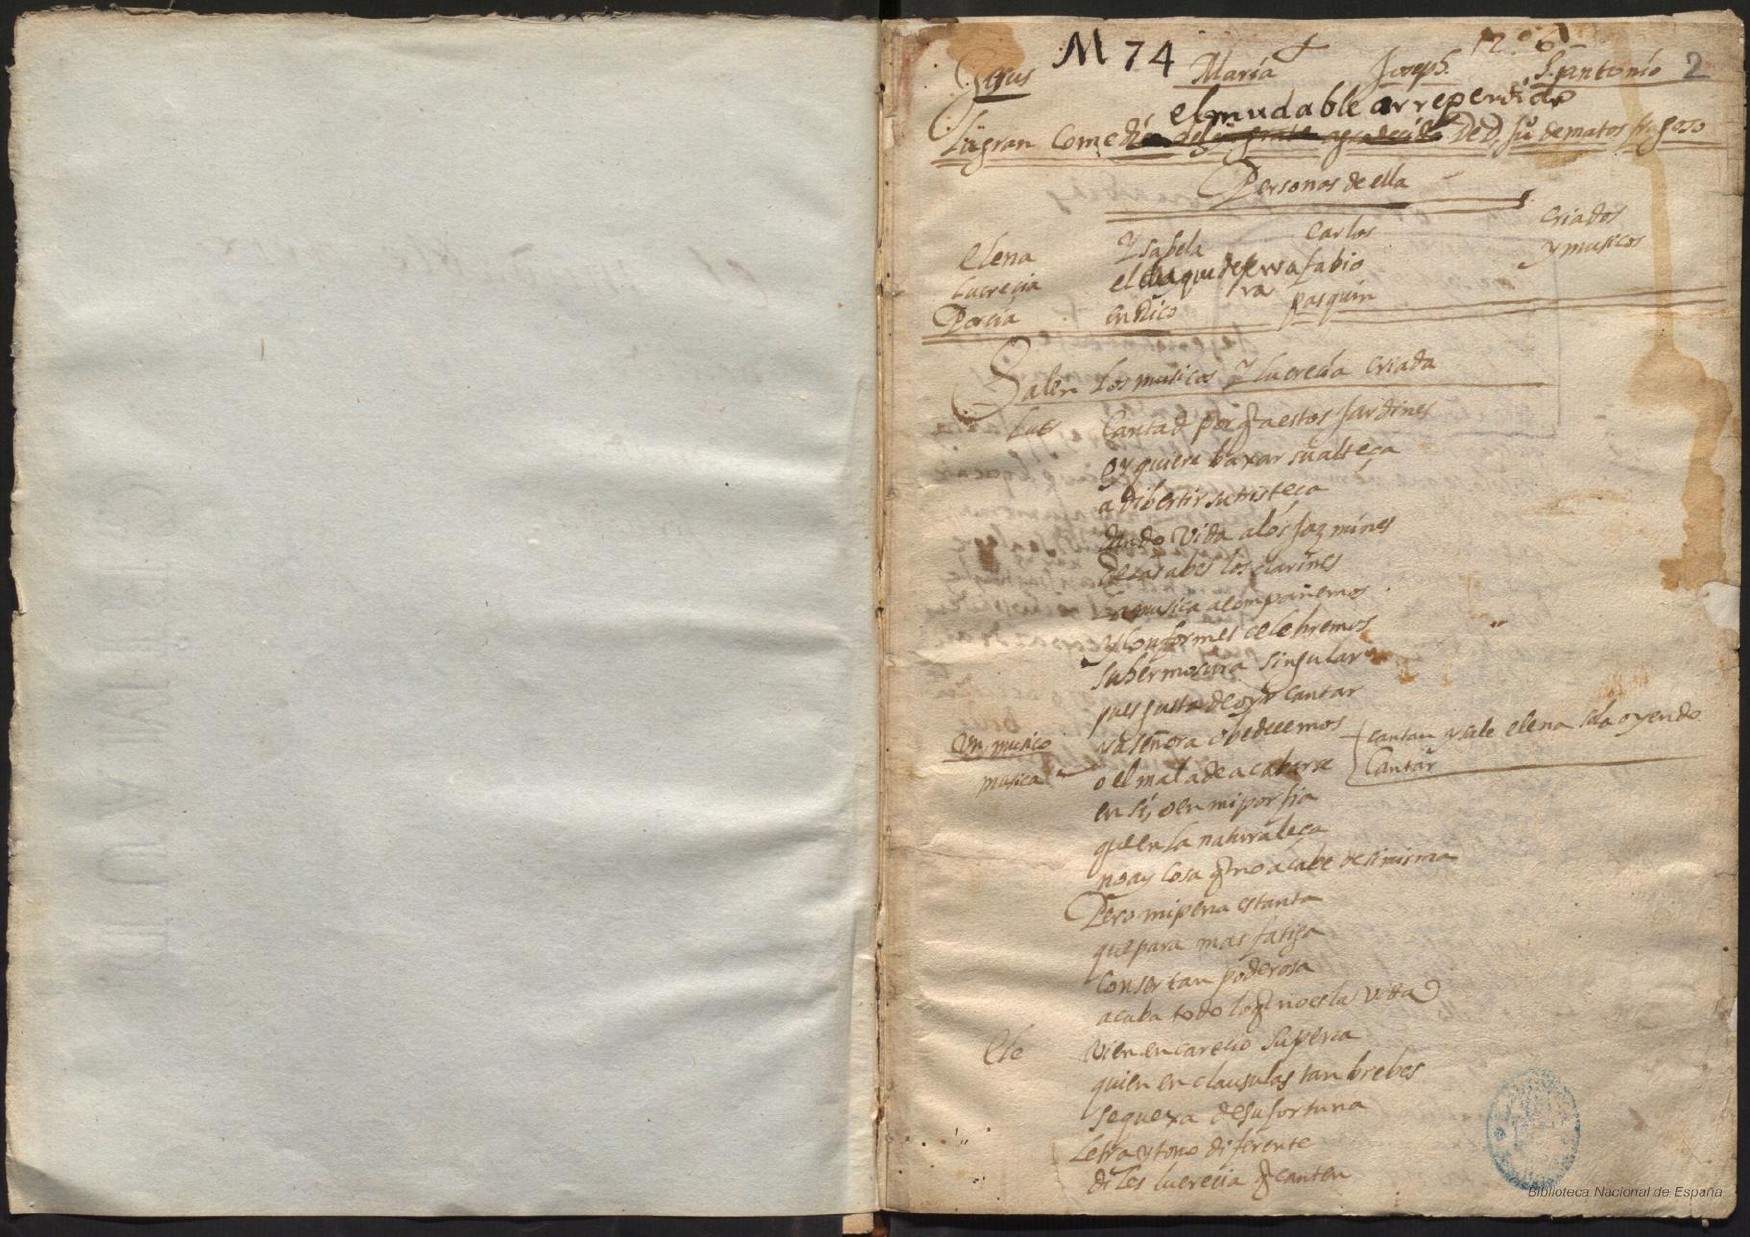 M 74
12.º 6
Jesus María Joseph. S. Antonio 2
el mudable arrepentido
La gran Comedia del ingrato agradecido De D. Ju de matos fragoso
Personas de ella
elena Ysabela Carlos criados
Lucrecia el duque de ferrara fabio y musicos
Porcia enRico pasquin
Salen Los musicos Y Lucrecia criada
Luc Cantad porq aestos Jardines
oy quiere baxar su alteça
a dibertir su tristeça
dando Vida a los Jazmines
de las abes los clarines
La musica acompañemos
y Conformes celebremos
su hermosura singular
pues gusta de oyr cantar
Un musico ya señora obedecemos cantan y sale elena sola oyendo
Cantar
musica o el mal a de acabarse
en si, o en mi porfia
que en la naturaleça
no ay Cosa q no acabe de si misma
Pero mi pena es tanta
que para mas fatiga
Con ser tan poderosa
acaba todo lo q no es la Vida
Ele Vien encarecio su pena
quien en clausulas tan brebes
se quexa de su fortuna
Letra y tono diferente
diles lucrecia q canten
Biblioteca Nacional de España